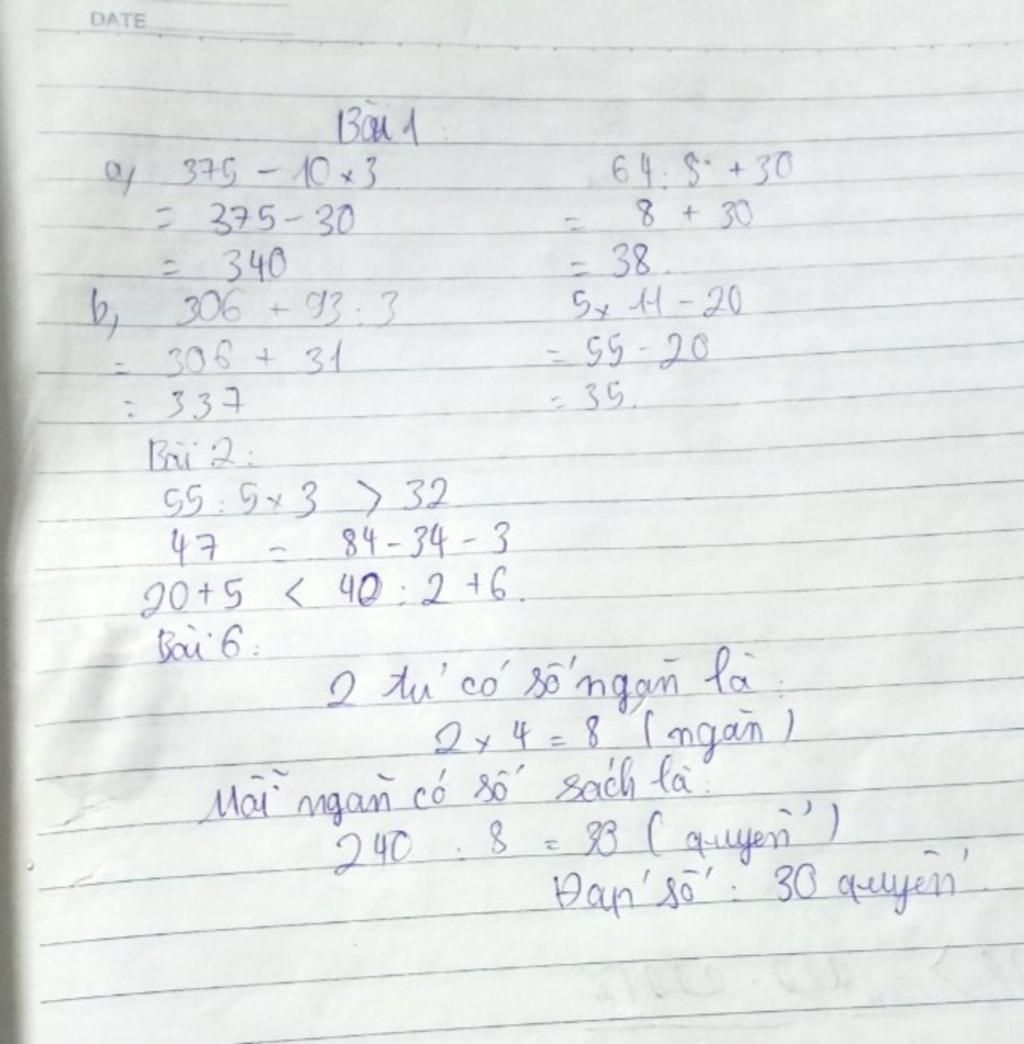 DATE
Bài 1
a, 375 - 10 x 3 64 : 8 + 30
= 375 - 30 = 8 + 30
= 340 = 38.
b, 306 + 93 : 3 5 x 11 - 20
= 306 + 31 = 55 - 20
= 337 = 35.
Bài 2:
55 : 5 x 3 > 32
47 = 84 - 34 - 3
20 + 5 < 40 : 2 + 6.
Bài 6:
2 tủ có số ngăn là:
2 x 4 = 8 (ngăn)
Mỗi ngăn có số sách là:
240 : 8 = 30 (quyển)
Đáp số: 30 quyển.